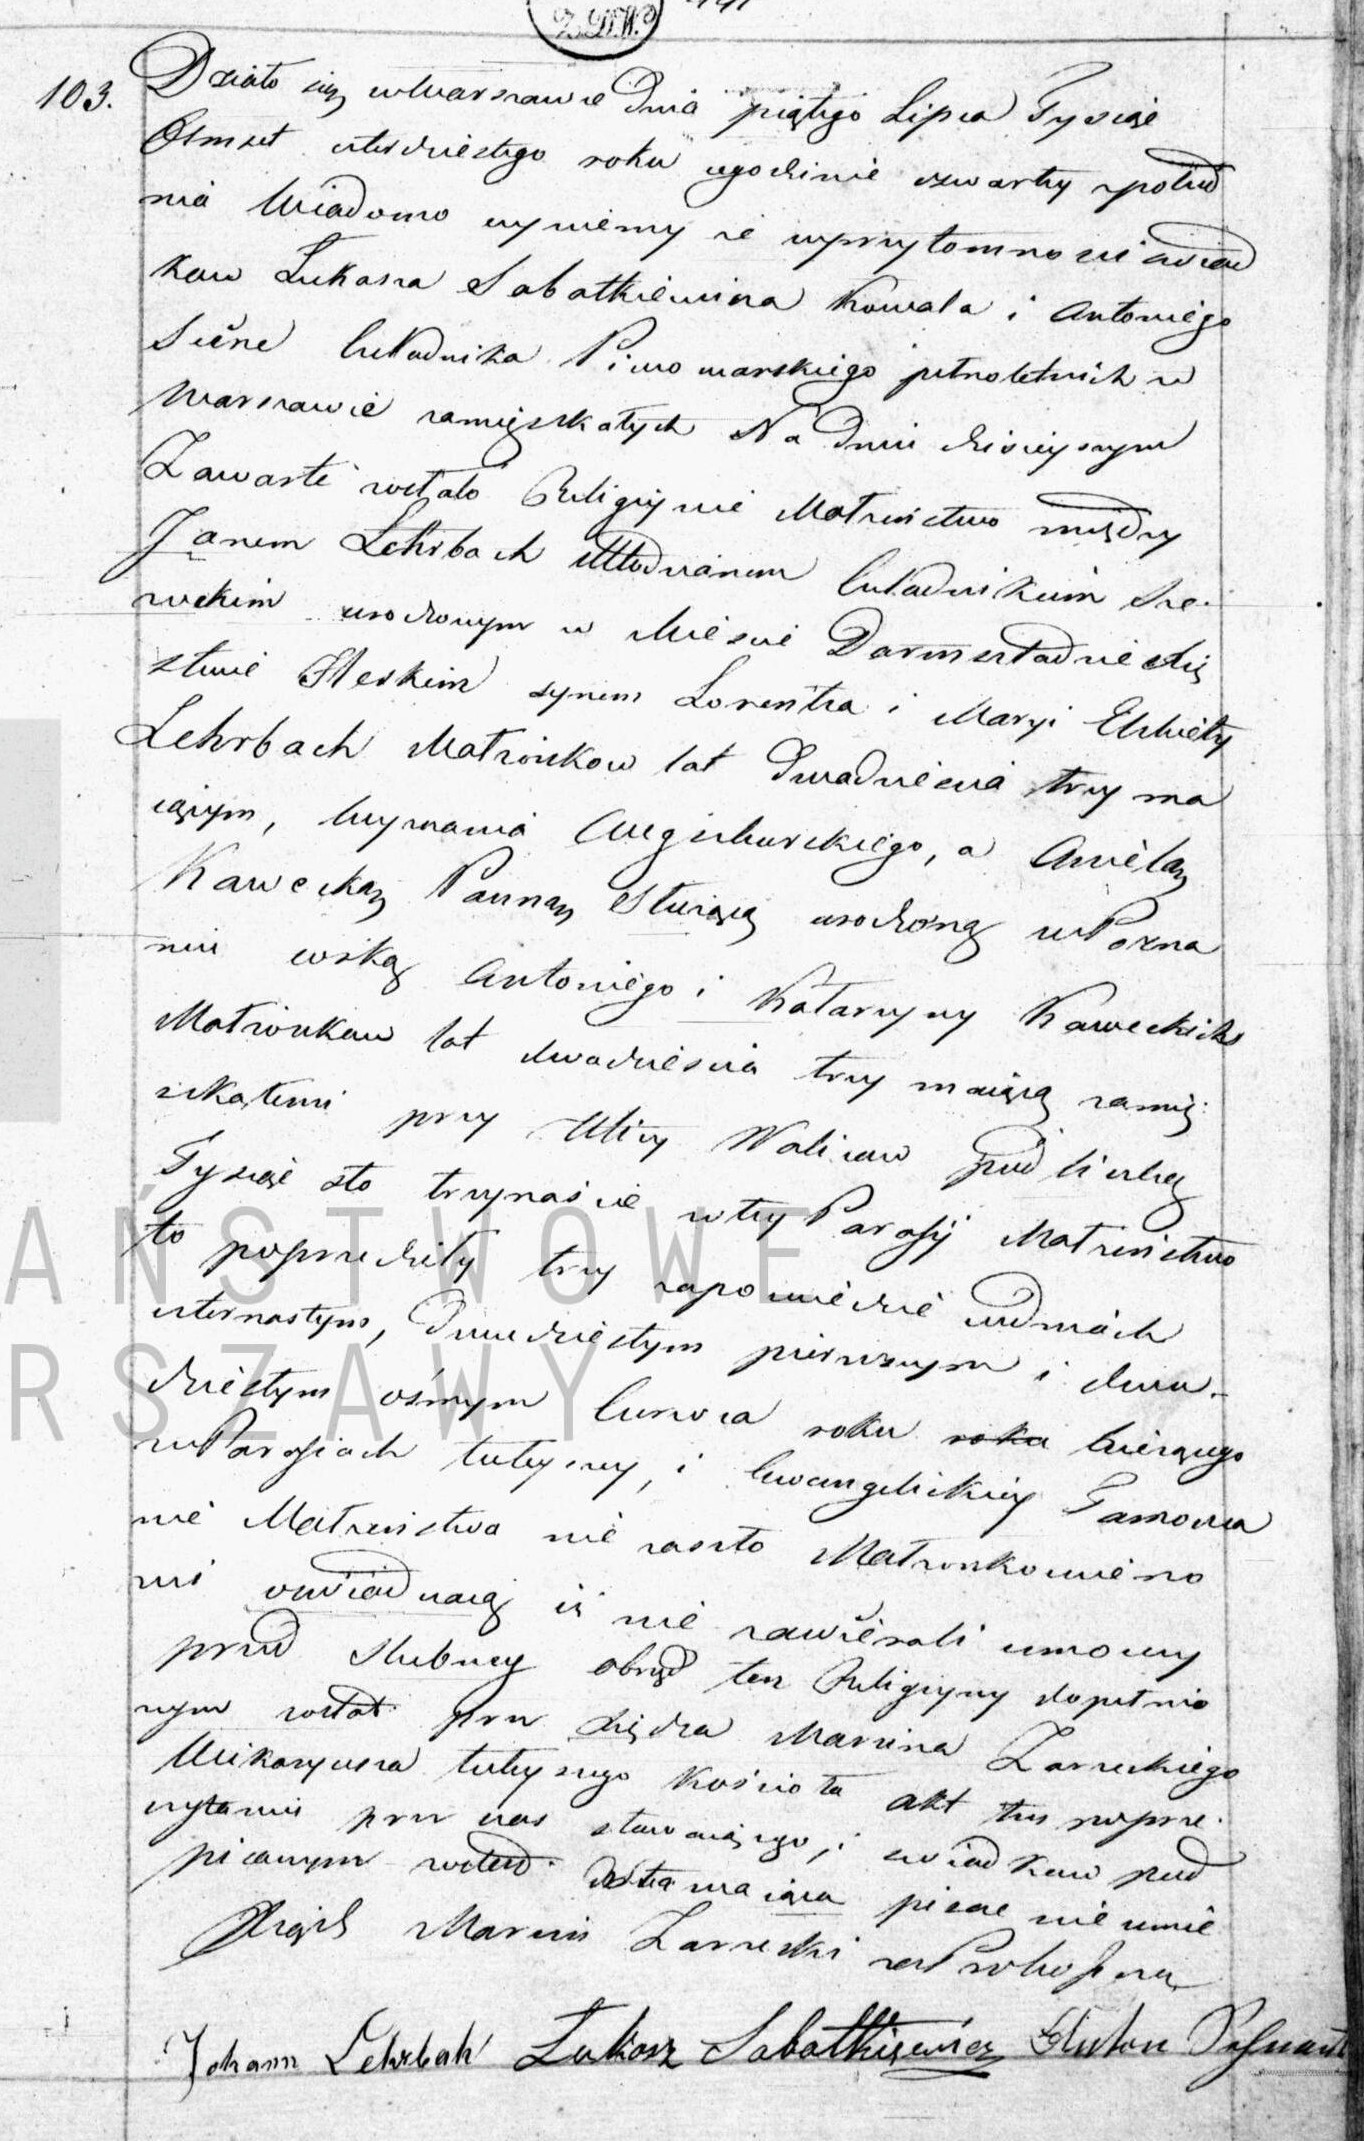 103.
Działo się w Warszawie Dnia piątego Lipca Tysiąc
Ośmset czterdziestego roku o godzinie czwartey z połud
nia Wiadomo czyniemy że w przytomności świad
kow Łukasza Sobotkiewicza Kowala i Antoniego
Czeladnika Piwowarskiego pełnoletnich w
Warszawie zamięszkałych Na dniu dzisieyszym
Zawarte zostało Religiyne Małżeństwo między
Janem Lehrbach Młodzianem Czeladnikiem Sze-
wckim urodzonym w Miescie Darmsztadzie Xię
stwie Heskim synem Lorentza i Maryi Elżbiety
Lehrbach Małżonkow lat Dwadzieścia trzy ma
iącym, Wyznania Augszburskiego, a Anielą
Kawecką Panną Służącą urodzoną w Pozna
niu corką Antoniego i Katarzyny Kaweckich
Małżonkow lat dwadzieścia trzy maiącą zamię-
szkałemi przy Ulicy Walicow pod liczbą
Tysiąc sto trzynaście w tey Parafij Małżeństwo
to poprzedziły trzy zapowiedzie w dniach
czternastym, Dwudziestym pierwszym i dwu-
dziestym osmym Czerwca roku roku bieżącego
w Parafiach tuteyszey, i Ewangelickiey Tamowa
nie Małżeństwa nie zaszło Małżonkowie no
wi oswiadczaią iż nie zawierali umowy
przed slubney obrząd ten Religiyny dopełnio
nym został przez Xiędza Marcina Zarzeckiego
Wikaryusza tuteyszego Kościoła akt ten po prze-
czytaniu przez nas stawaiącego, i swiadkow pod
pisanym został. stawaiąca pisac nie umie
Xiądz Marcin Zarzecki za Proboszcza
Johann Lehrbah Łukasz Sobotkiewicz Anton
AŃSTWOWE
RSZAWY